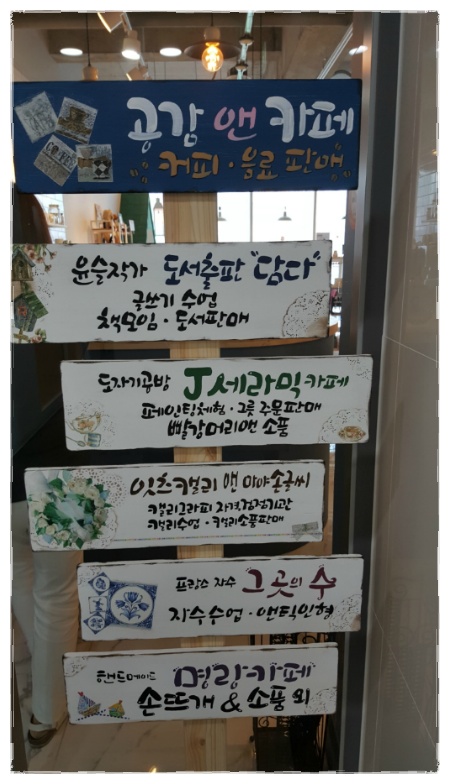 공감 앤 카페
커피 · 음료 판매
윤슬작가 도서출판 "담다"
글쓰기 수업
책모임 · 도서판매
도자기공방 J세라믹카페
페인팅체험 · 그릇 주문판매
빨강머리앤 소품
잇츠캘리 앤 마야손글씨
캘리그라피 자격검정기관
캘리수업 · 캘리소품판매
프랑스 자수 그곳의 수
자수수업 · 앤틱인형
핸드메이드 명랑카페
손뜨개 & 소품 외